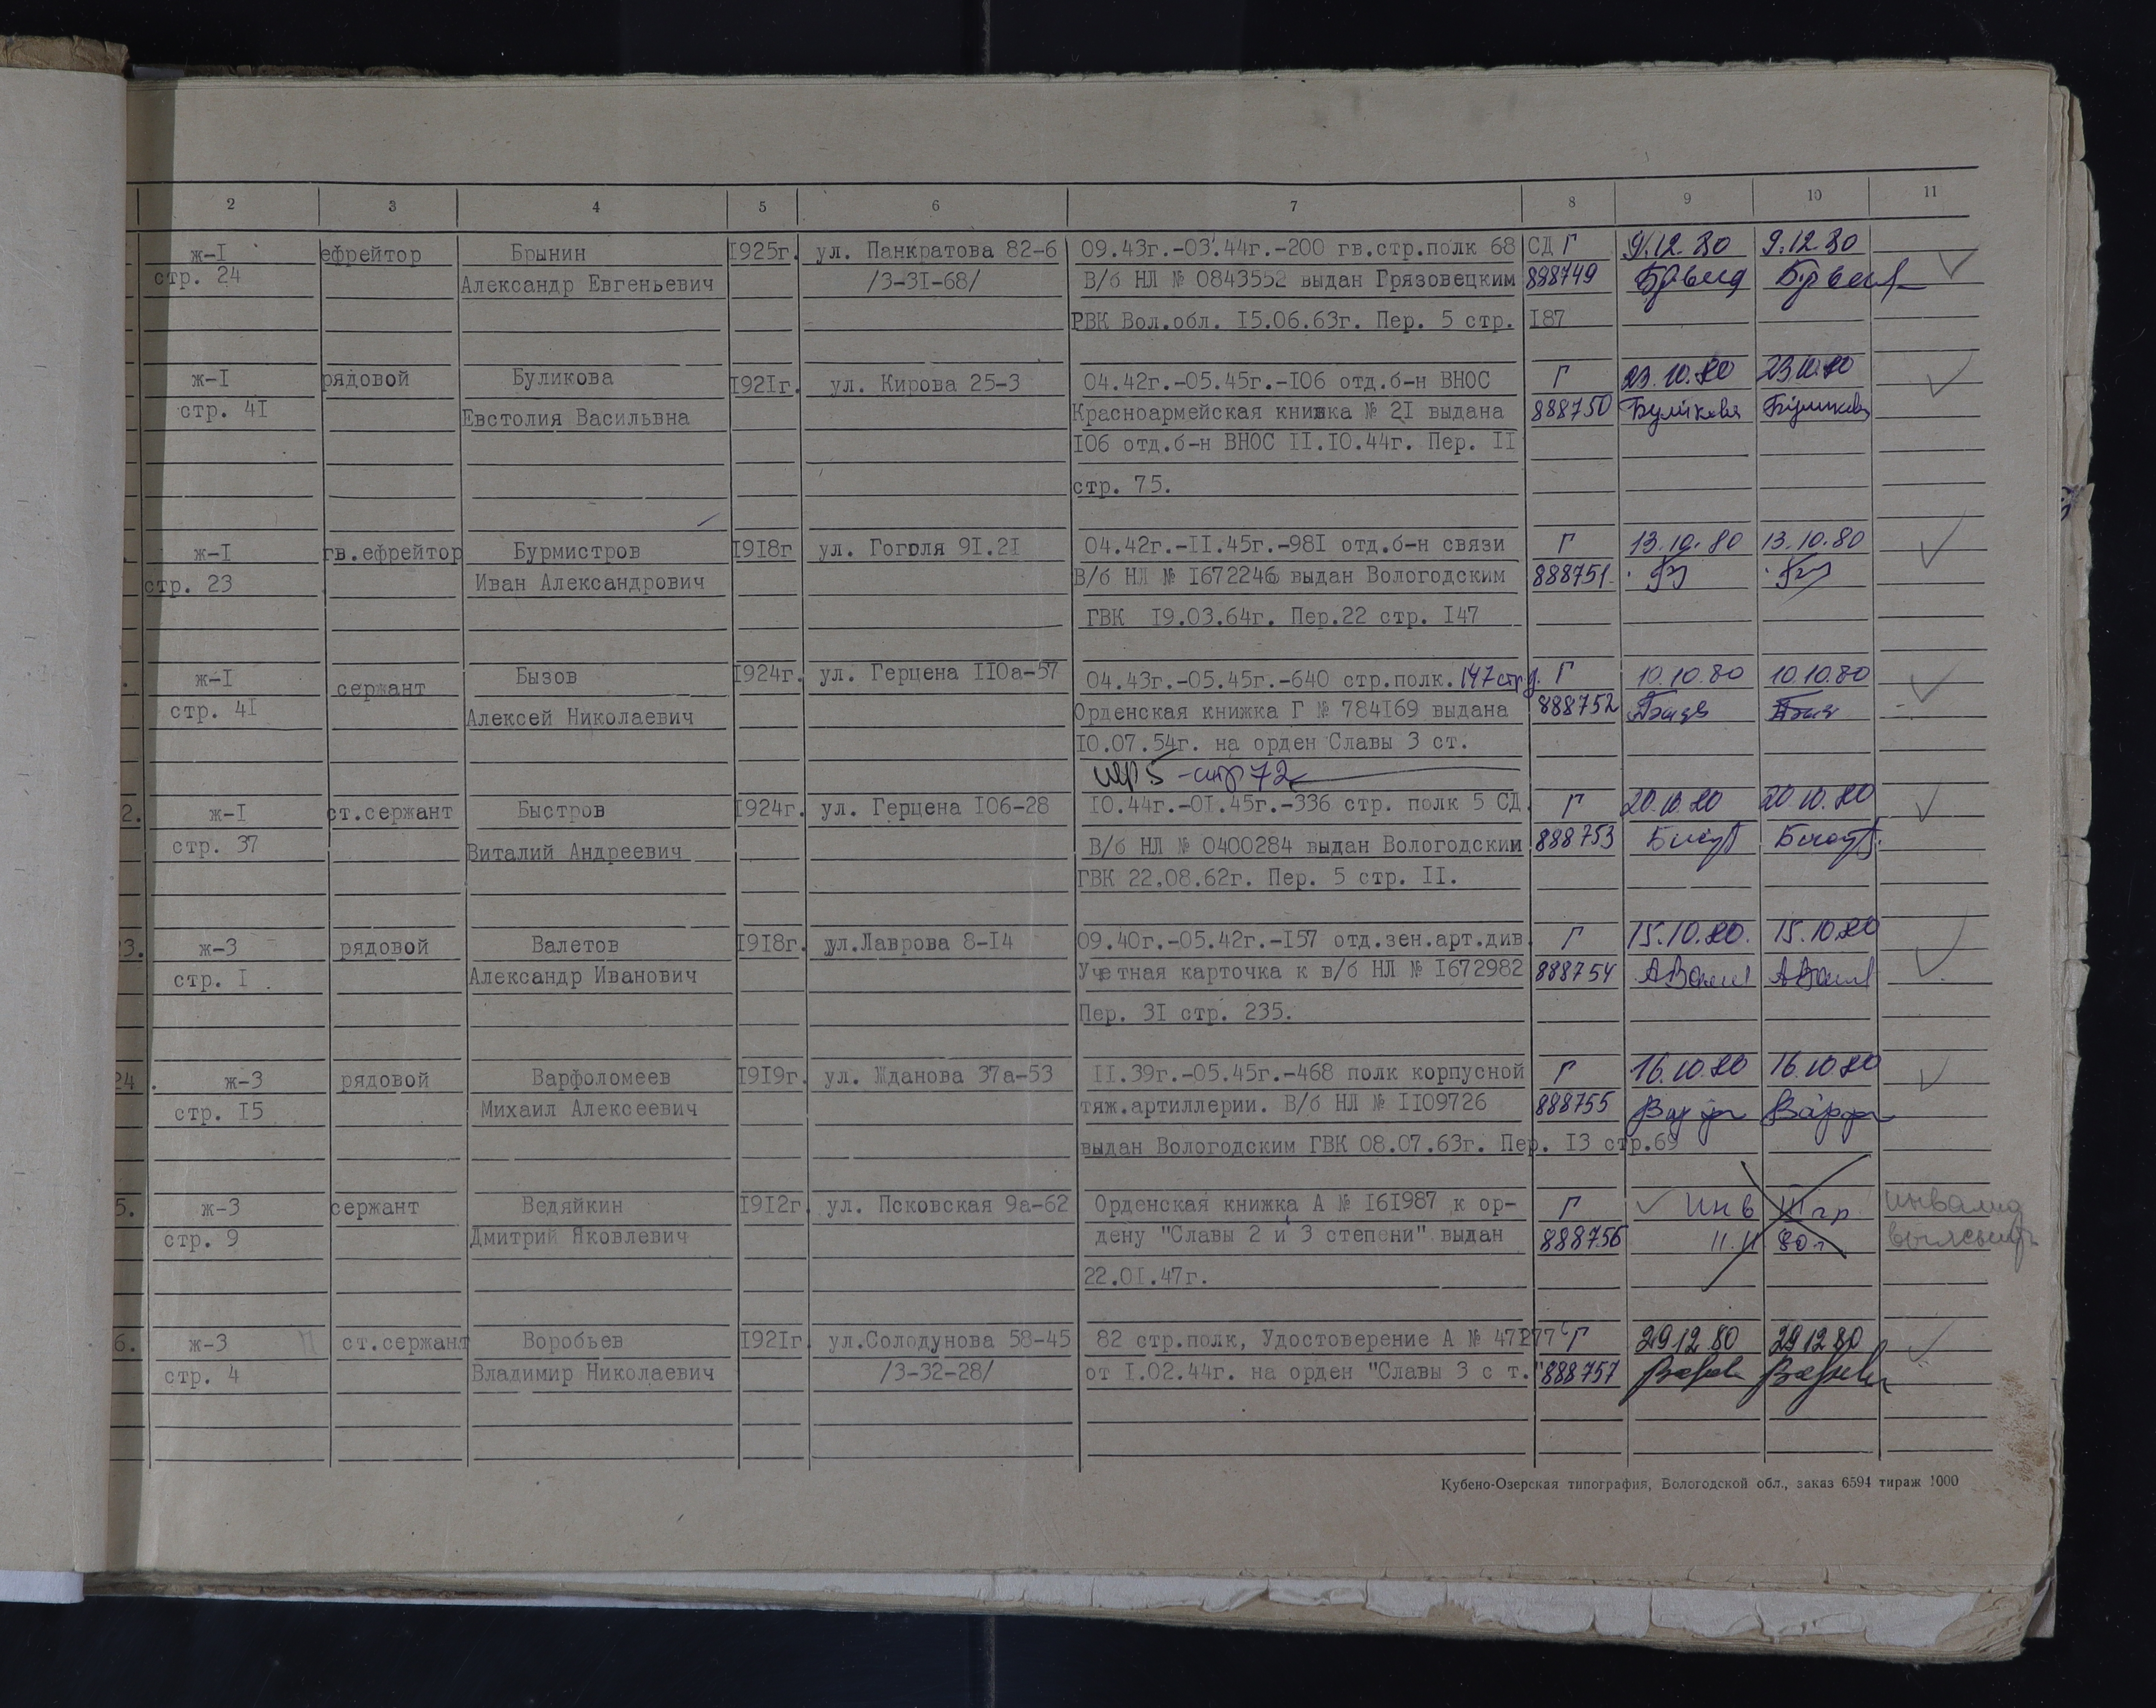 2 3 4 5 6 7 8 9 10 11
ж-I ефрейтор Брынин 1925г. ул. Панкратова 82-6 09.43г.-03.44г.-200 гв.стр.полк 68 СД Г 9.12.80 9.12.80
стр. 24 Александр Евгеньевич /3-31-68/ В/б НЛ № 0843552 выдан Грязовецким 888749
РВК Вол.обл. 15.06.63г. Пер. 5 стр. 187
ж-I рядовой Буликова 1921г. ул. Кирова 25-3 04.42г.-05.45г.-106 отд.б-н ВНОС Г 23.10.80 23.10.80
стр. 41 Евстолия Васильвна Красноармейская книжка № 21 выдана 888750 Буликова Буликова
106 отд.б-н ВНОС II.10.44г. Пер. II
стр. 75.
ж-I гв.ефрейтор Бурмистров 1918г ул. Гоголя 91.21 04.42г.-II.45г.-981 отд.б-н связи Г 13.10.80 13.10.80
стр. 23 Иван Александрович В/б НЛ № 1672246 выдан Вологодским 888751
ГВК 19.03.64г. Пер.22 стр. 147
ж-I сержант Бызов 1924г. ул. Герцена 110а-57 04.43г.-05.45г.-640 стр.полк. 147 стр д. Г 10.10.80 10.10.80
стр. 41 Алексей Николаевич Орденская книжка Г № 784169 выдана 888752
10.07.54г. на орден Славы 3 ст.
пер 5 - стр 72
2. ж-I ст.сержант Быстров 1924г. ул. Герцена 106-28 10.44г.-01.45г.-336 стр. полк 5 СД. Г 20.10.80 20.10.80
стр. 37 Виталий Андреевич В/б НЛ № 0400284 выдан Вологодским 888753
ГВК 22.08.62г. Пер. 5 стр. II.
3. ж-3 рядовой Валетов 1918г. ул.Лаврова 8-14 09.40г.-05.42г.-157 отд.зен.арт.див. Г 15.10.80. 15.10.80
стр. I Александр Иванович Учетная карточка к в/б НЛ № 1672982 888754
Пер. 31 стр. 235.
24. ж-3 рядовой Варфоломеев 1919г. ул. Жданова 37а-53 II.39г.-05.45г.-468 полк корпусной Г 16.10.80 16.10.80
стр. 15 Михаил Алексеевич тяж.артиллерии. В/б НЛ № 1109726 888755
выдан Вологодским ГВК 08.07.63г. Пер. 13 стр.69
5. ж-3 сержант Ведяйкин 1912г. ул. Псковская 9а-62 Орденская книжка А № 161987 к ор- Г Инв III гр. инвалид
стр. 9 Дмитрий Яковлевич дену "Славы 2 и 3 степени" выдан 888756 11.11 80г
22.01.47г.
6. ж-3 ст.сержант Воробьев 1921г. ул.Солодунова 58-45 82 стр.полк, Удостоверение А № 47177 Г 29.12.80 29.12.80
стр. 4 Владимир Николаевич /3-32-28/ от I.02.44г. на орден "Славы 3 с т." 888757
Кубено-Озерская типография, Вологодской обл., заказ 6594 тираж 1000